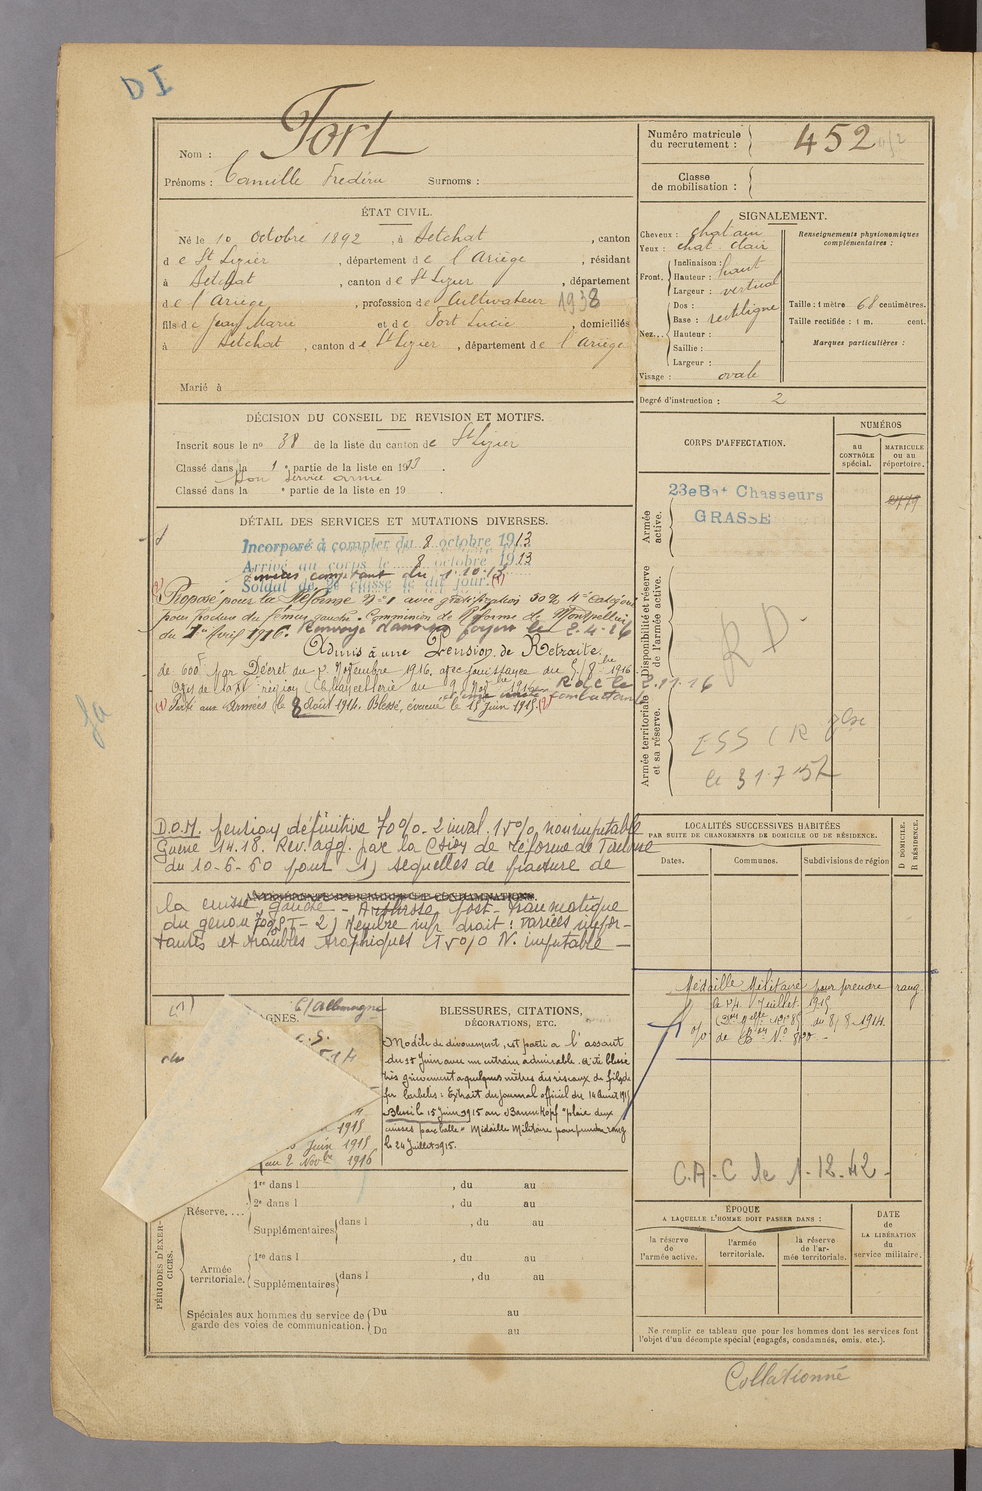 DI
Nom : Fort
Prénoms : Camille Frédéric Surnoms :
Numéro matricule du recrutement : 452
Classe de mobilisation :
ÉTAT CIVIL.
Né le 10 Octobre 1892, à Betchat, canton
de St Lizier, département de l'Ariège, résidant
à Betchat, canton de St Lizier, département
de l'Ariège, profession de Cultivateur 1938
fils de Jean Marie et de Fort Lucie, domiciliés
à Betchat, canton de St Lizier, département de l'Ariège
Marié à
SIGNALEMENT.
Cheveux : chatain
Yeux : chat. clair
Front. Inclinaison :
Hauteur : haut
Largeur : vertical
Nez... Dos :
Base : rectiligne
Hauteur :
Saillie :
Largeur :
Visage : ovale
Renseignements physionomiques complémentaires :
Taille : 1 mètre 68 centimètres.
Taille rectifiée : 1 m. cent.
Marques particulières :
Degré d'instruction : 2
DÉCISION DU CONSEIL DE REVISION ET MOTIFS.
Inscrit sous le no 38 de la liste du canton de St Lizier
Classé dans la 1e partie de la liste en 1913.
Bon service armé
Classé dans la e partie de la liste en 19 .
CORPS D'AFFECTATION.
NUMÉROS
au CONTRÔLE spécial.
MATRICULE ou au répertoire.
Armée active.
23e Bon Chasseurs
GRASSE
2479
Disponibilité et réserve de l'armée active.
RD.
Armée territoriale et sa réserve.
ESS CR
le 31.7.52
DÉTAIL DES SERVICES ET MUTATIONS DIVERSES.
Incorporé à compter du 8 octobre 1913
Arrivé au corps le 8 octobre 1913
services comptant du 1.10.13
Soldat de 2e classe le dit jour. (1)
(2) Proposé pour la Réforme N°1 avec gratification 30% 4e catégorie
pour fracture du fémur gauche. Commission de Réforme de Montpellier
du 1er Avril 1916. Renvoyé dans ses foyers le 2-4-16
Admis à une Pension de Retraite
de 600f par Décret du 2 Novembre 1916, avec jouissance du
R.d.C le 2.11.16
(1) Parti aux Armées le 8 Août 1914. Blessé, évacué le 15 Juin 1915. (2)
D.O.M. pension définitive 70% - 2 inval. 15% non imputable
Guerre 14.18. Rev. agg. par la Cion de réforme de Toulouse
du 10-6-60 pour 1) séquelles de fracture de
ANTÉCÉDENTS JUDICIAIRES ET CONDAMNATIONS.
la cuisse gauche - Arthrose post-traumatique
du genou 70% P.T - 2) Membre infr droit : varices impor-
tantes et troubles trophiques 15% N. imputable -
LOCALITÉS SUCCESSIVES HABITÉES
PAR SUITE DE CHANGEMENTS DE DOMICILE OU DE RÉSIDENCE.
Dates.
Communes.
Subdivisions de région
D DOMICILE.
R RÉSIDENCE.
Médaille Militaire pour prendre rang
24 Juillet 1915
du 8/8-1914.
C.A.C le 1-12-42-
C/ Allemagne
BLESSURES, CITATIONS,
DÉCORATIONS, ETC.
Modèle de dévouement, est parti a l'assaut
du 15 Juin avec un entrain admirable. a été blessé
très grièvement a quelques mètres des réseaux de fils de
fer barbelés : Extrait du Journal officiel du 14 Août 1915
Blessé le 15 Juin 1915 au Braunkopf "plaie deux
cuisses par balle" Médaille Militaire pour prendre rang
le 24 Juillet 1915.
1915
Juin 1915
au 2 Novbre 1916
PÉRIODES D'EXERCICES.
Réserve....
1re dans l , du au
2e dans l , du au
Supplémentaires dans l , du au
Armée territoriale.
1re dans l , du au
Supplémentaires dans l , du au
Spéciales aux hommes du service de garde des voies de communication.
Du au
Du au
ÉPOQUE
A LAQUELLE L'HOMME DOIT PASSER DANS :
la réserve de l'armée active.
l'armée territoriale.
la réserve de l'armée territoriale.
DATE de LA LIBÉRATION du service militaire.
Ne remplir ce tableau que pour les hommes dont les services font
l'objet d'un décompte spécial (engagés, condamnés, omis, etc.).
Collationné